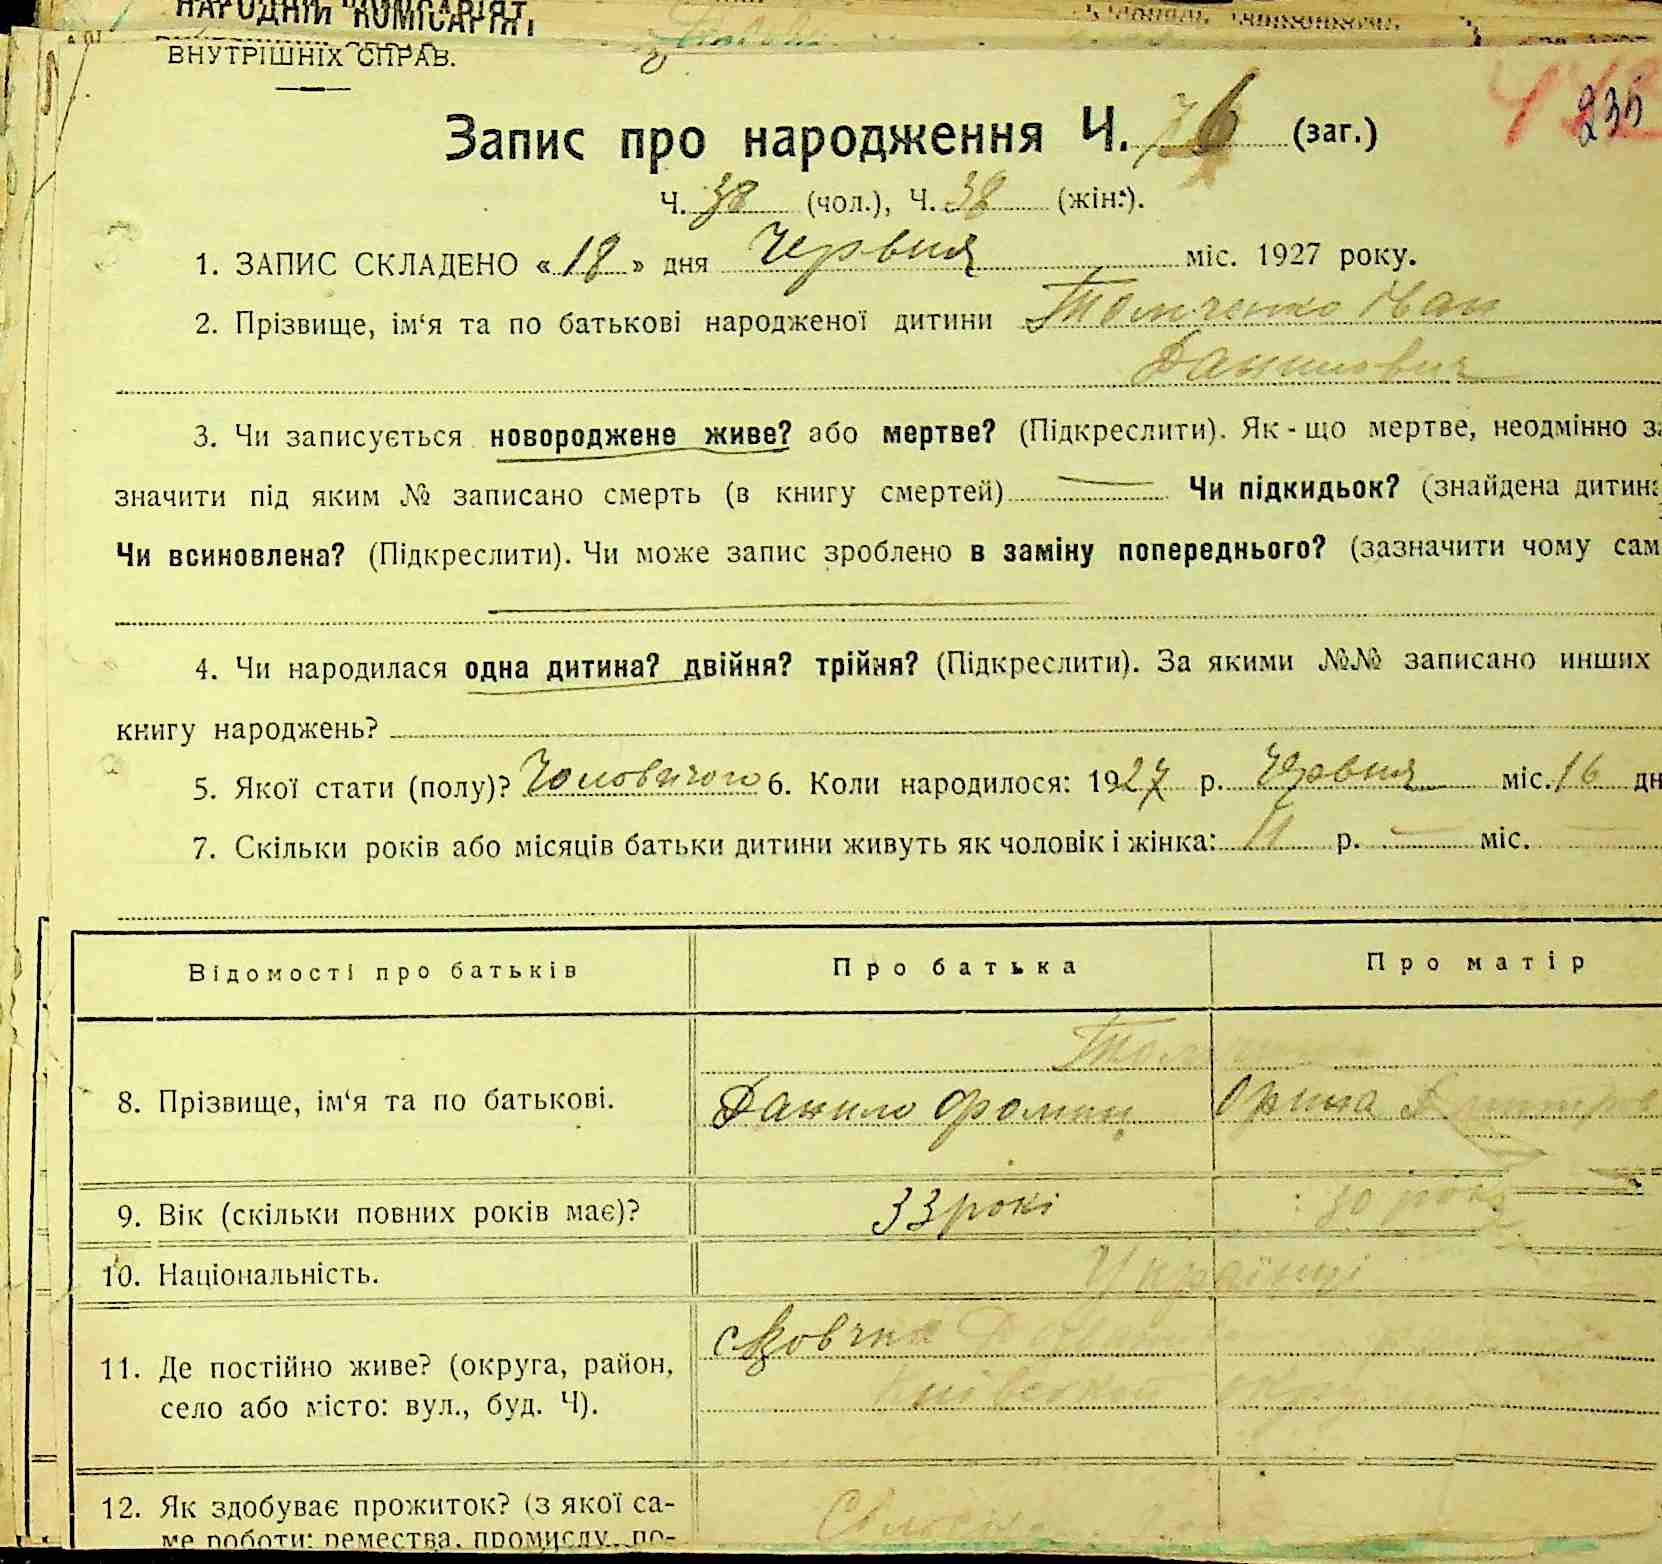 НАРОДНІЙ КОМІСАРІЯТ
ВНУТРІШНІХ СПРАВ.
235
Запис про народження Ч. 76 (заг.)
Ч. 38 (чол.), Ч. 38 (жін.).
1. ЗАПИС СКЛАДЕНО « 18 » дня Червня міс. 1927 року.
2. Прізвище, ім‘я та по батькові народженої дитини Толпченко Іван
Данилович
3. Чи записується новороджене живе? або мертве? (Підкреслити). Як-що мертве, неодмінно за
значити під яким № записано смерть (в книгу смертей) Чи підкидьок? (знайдена дитина
Чи всиновлена? (Підкреслити). Чи може запис зроблено в заміну попереднього? (зазначити чому сам
4. Чи народилася одна дитина? двійня? трійня? (Підкреслити). За якими №№ записано инших
книгу народжень?
5. Якої стати (полу)? Чоловічого 6. Коли народилося: 1927 р. Червня міс. 16 дн
7. Скільки років або місяців батьки дитини живуть як чоловік і жінка: 11 р. — міс.
Відомості про батьків Про батька Про матір
8. Прізвище, ім‘я та по батькові. Данило Фомич Орина
9. Вік (скільки повних років має)? 33 рокі 30 рокі
10. Національність. Українці
11. Де постійно живе? (округа, район,
село або місто: вул., буд. Ч).
12. Як здобуває прожиток? (з якої са-
ме роботи: ремества, промислу, по-